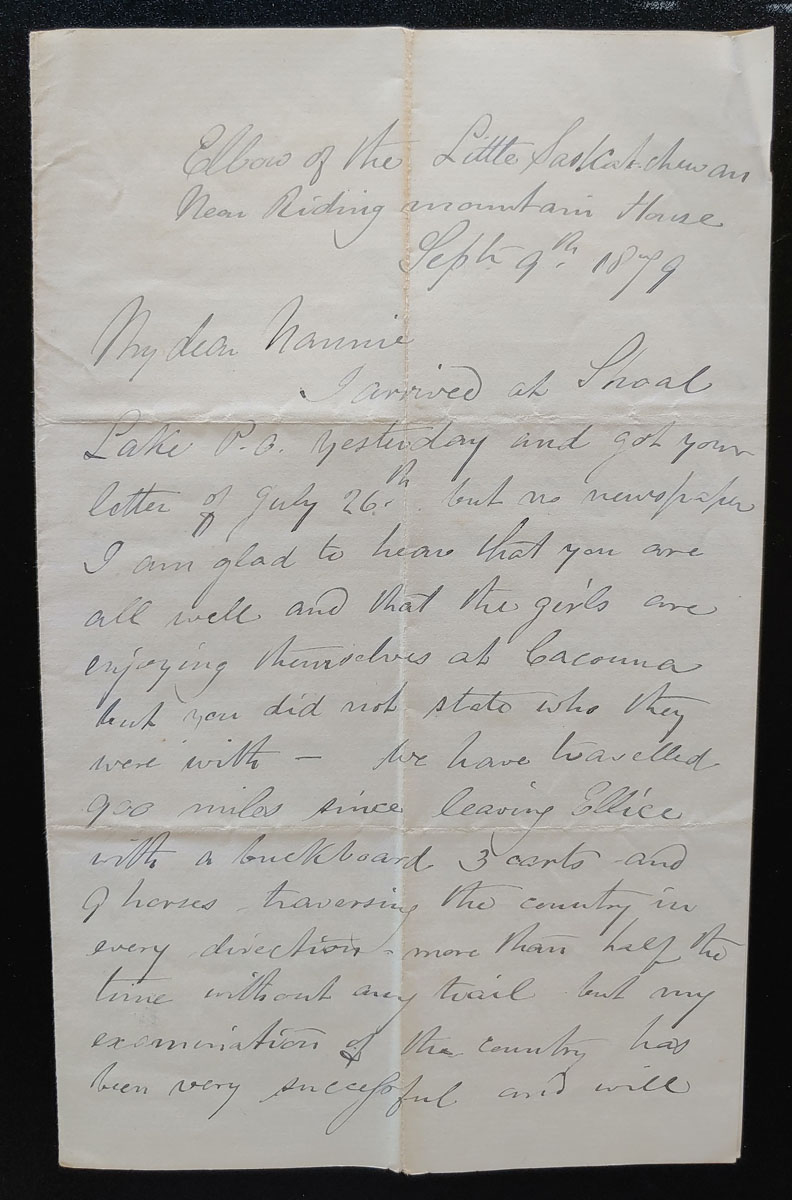 Elbow of the Little Saskatchewan
Near Riding mountain House
Sept 9th. 1879
My dear Nannie
I arrived at Shoal
Lake P.O. yesterday and got your
letter of July 26th. but no newspaper
I am glad to hear that you are
all well and that the girls are
enjoying themselves at Cacouna
but you did not state who they
were with – We have travelled
900 miles since leaving Ellice
with a buckboard 3 carts and
9 horses traversing the country in
every direction – more than half the
time without any trail but my
examination of the country has
been very successful and will